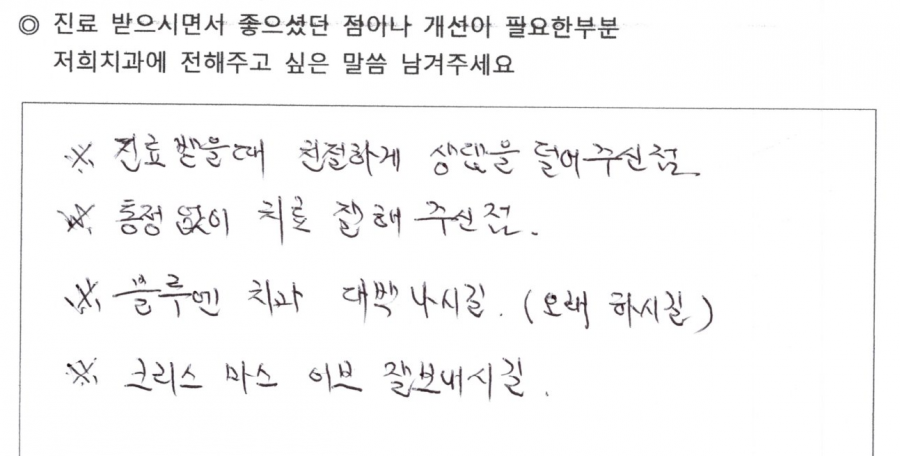 ◎ 진료 받으시면서 좋으셨던 점이나 개선이 필요한부분
저희치과에 전해주고 싶은 말씀 남겨주세요
※ 진료 받을때 친절하게 상담을 덜어주신점.
※ 통정없이 치료 잘해 주신점.
※ 블루엔 치과 대박나시길. (오래 하시길)
※ 크리스 마스 이브 잘보내시길.